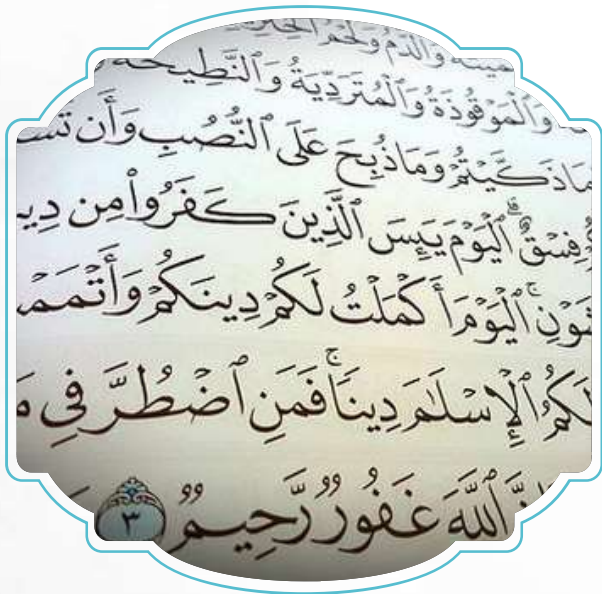 ٱلْمَيْتَةُ وَٱلدَّمُ وَلَحْمُ ٱلْخِنزِيرِ
وَٱلْمَوْقُوذَةُ وَٱلْمُتَرَدِّيَةُ وَٱلنَّطِيحَةُ
مَاذَكَّيْتُمْ وَمَاذُبِحَ عَلَى ٱلنُّصُبِ وَأَن
فِسْقٌۗ ٱلْيَوْمَ يَئِسَ ٱلَّذِينَ كَفَرُوا۟ مِن
ٱلْيَوْمَ أَكْمَلْتُ لَكُمْ دِينَكُمْ وَأَتْمَمْ
لَكُمُ ٱلْإِسْلَٰمَ دِينًاۚ فَمَنِ ٱضْطُرَّ فِى
ٱللَّهَ غَفُورٌ رَّحِيمٌ ٣